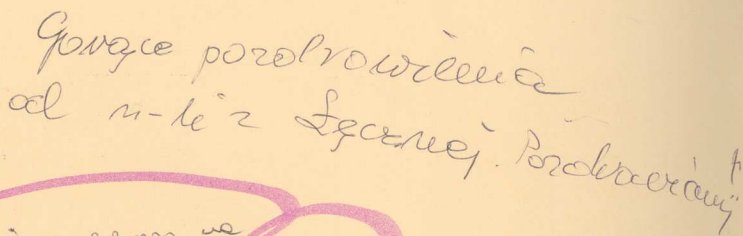 Gorące pozdrowienia
od n-li z Łęcznej. Pozdrawiamy
na